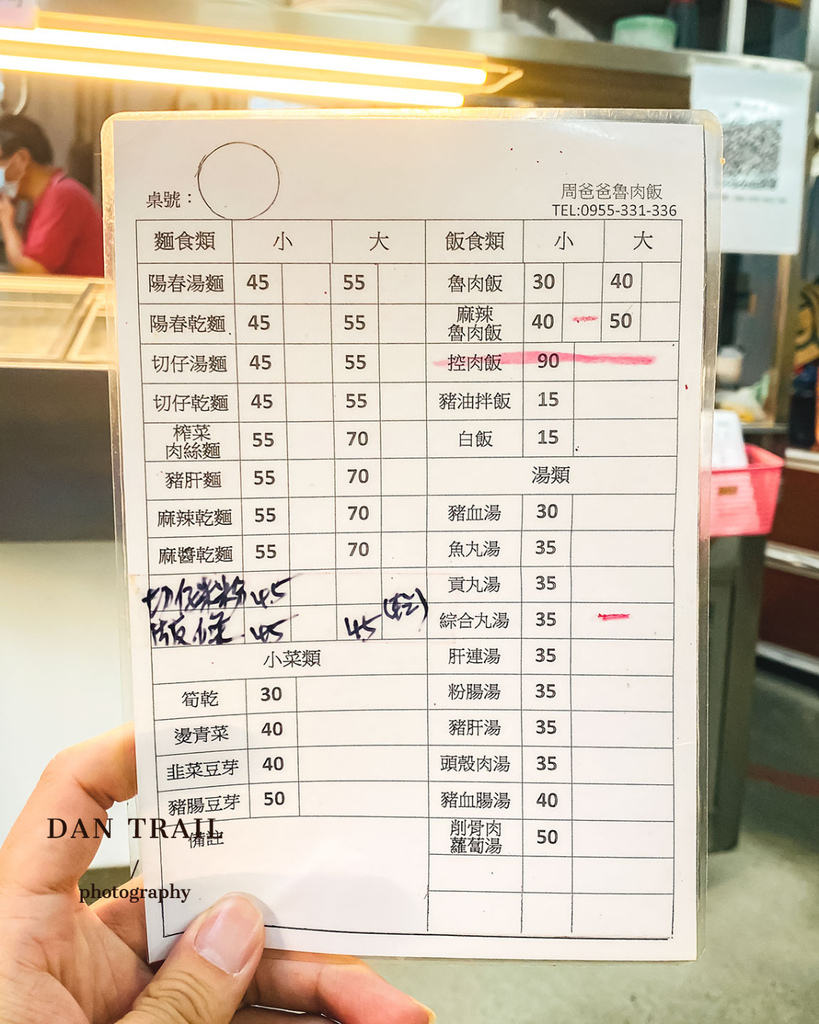 桌號：
周爸爸魯肉飯
TEL:0955-331-336
麵食類 小 大
陽春湯麵 45 55
陽春乾麵 45 55
切仔湯麵 45 55
切仔乾麵 45 55
榨菜
肉絲麵 55 70
豬肝麵 55 70
麻辣乾麵 55 70
麻醬乾麵 55 70
切仔米粉 45
板條 45 45 (乾)
小菜類
筍乾 30
燙青菜 40
韭菜豆芽 40
豬腸豆芽 50
備註
飯食類 小 大
魯肉飯 30 40
麻辣
魯肉飯 40 50
控肉飯 90
豬油拌飯 15
白飯 15
湯類
豬血湯 30
魚丸湯 35
貢丸湯 35
綜合丸湯 35
肝連湯 35
粉腸湯 35
豬肝湯 35
頭殼肉湯 35
豬血腸湯 40
削骨肉
蘿蔔湯 50
DAN TRAIL
photography